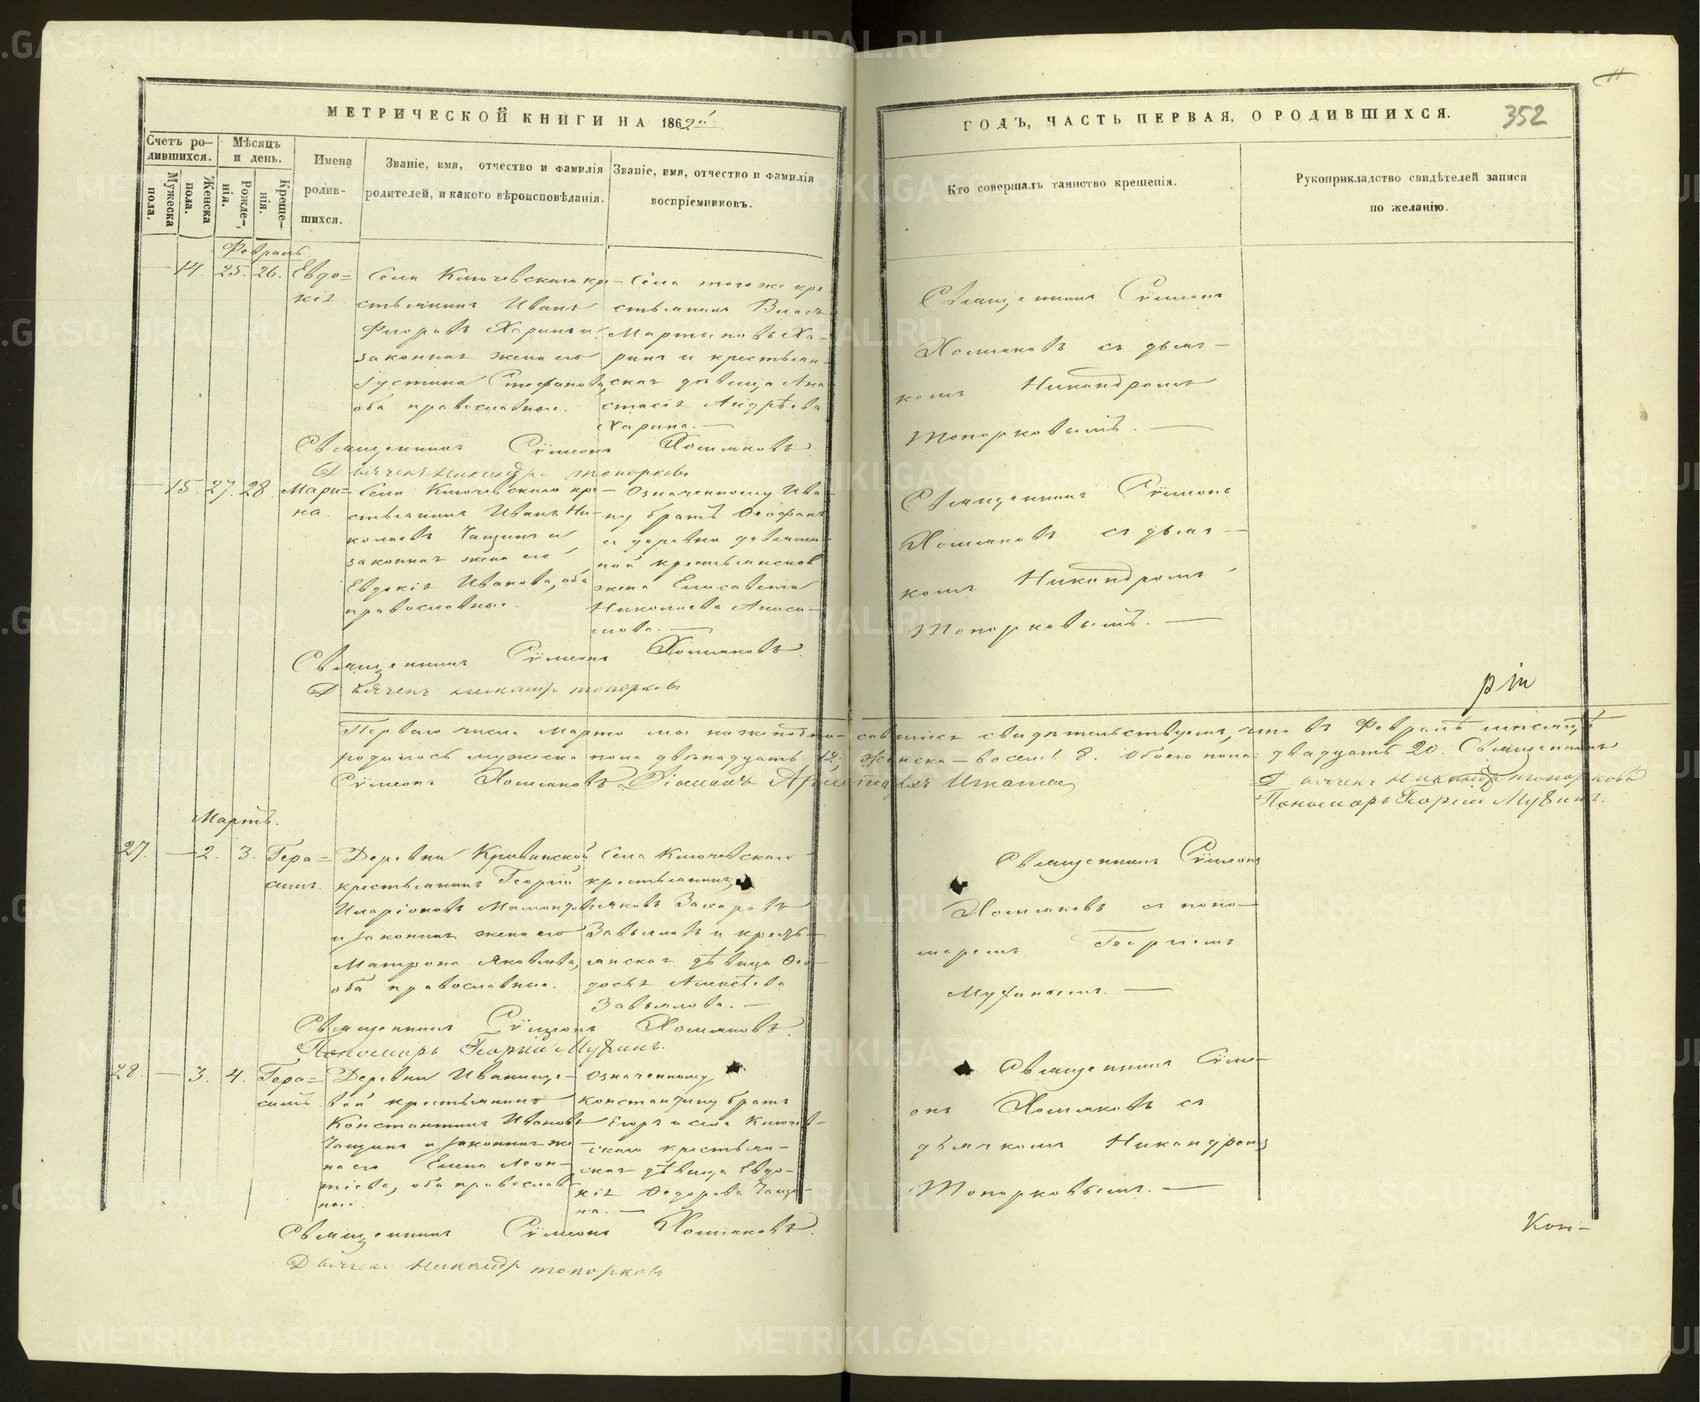 МЕТРИЧЕСКОЙ КНИГИ НА 1862й
ГОДЪ, ЧАСТЬ ПЕРВАЯ, О РОДИВШИХСЯ.
352
Счетъ ро-
дившихся.
Мужеска
пола.
Женска
пола.
Мѣсяцъ
и день.
Рожде-
нія.
Креще-
нія.
Имена
родив-
шихся.
Званіе, имя, отчество и фамилія
родителей, и какого вѣроисповѣданія.
Званіе, имя, отчество и фамилія
воспріемниковъ.
Кто совершалъ таинство крещенія.
Рукоприкладство свидѣтелей записи
по желанію.
Февраль
14. 25. 26. Евдо=
кія
Села Ключевскаго кре-
стьянинъ Иванъ
Флоровъ Харинъ и
законная жена его
Іустина Стефанова,
оба православные.
Села того же кре-
стьянинъ Власъ
Мартыновъ Ха-
ринъ и крестьян-
ская дѣвица Ана-
стасія Андрѣева
Харина. —
Священникъ Сѵмеонъ
Хомяковъ съ дьяч-
комъ Никандромъ
Топорковымъ. —
Священникъ Сѵмеонъ Хомяковъ
Дьячекъ Никандръ Топорковъ
15. 27. 28. Мари=
на.
Села Ключевскаго кре-
стьянинъ Иванъ Ни-
колаевъ Чащинъ и
законная жена его
Евдокія Иванова, оба
православные.
Означенному Ива-
ну братъ Феофанъ
и деревни
крестьянская
жена Елисавета
Николаева Аниси-
мова. —
Священникъ Сѵмеонъ
Хомяковъ съ дьяч-
комъ Никандромъ
Топорковымъ. —
Священникъ Сѵмеонъ Хомяковъ
Дьячекъ Никандръ Топорковъ
Перваго числа Марта мы нижеподпи-савшіеся свидѣтельствуемъ, что въ Февралѣ мѣсяцѣ
родилось мужеска пола двенадцать 12, женска — восемь 8. Обоего пола двадцать 20. Священникъ
Сѵмеонъ Хомяковъ Діаконъ
Дьячекъ Никандръ Топорковъ
Пономарь Георгій Мухинъ.
Мартъ.
27. — 2. 3. Гера=
симъ.
Деревни Кривинской
крестьянинъ Георгій
Иларіоновъ Мамонтовъ
и законная жена его
Матрона Яковлева,
оба православные.
Села Ключевскаго
крестьянинъ
Яковъ Захаровъ
Завьяловъ и кресть-
янская дѣвица Ѳео-
досья Алексѣева
Завьялова. —
Священникъ Сѵмеонъ
Хомяковъ съ поно-
маремъ Георгіемъ
Мухинымъ. —
Священникъ Сѵмеонъ Хомяковъ
Пономарь Георгій Мухинъ.
28. — 3. 4. Гера=
симъ.
Деревни Иванище-
вой крестьянинъ
Константинъ Ивановъ
Чащинъ и законная же-
на его Елена Леон-
тіева, оба православ
ные.
Означенному
Константину братъ
Егоръ и села Ключев-
скаго крестьян-
ская дѣвица Евдо-
кія Ѳедорова Чащи-
на. —
Священникъ Сѵме-
онъ Хомяковъ съ
дьячкомъ Никандромъ
Топорковымъ. —
Священникъ Сѵмеонъ Хомяковъ.
Дьячекъ Никандръ Топорковъ
Кон-
METRIKI.GASO-URAL.RU